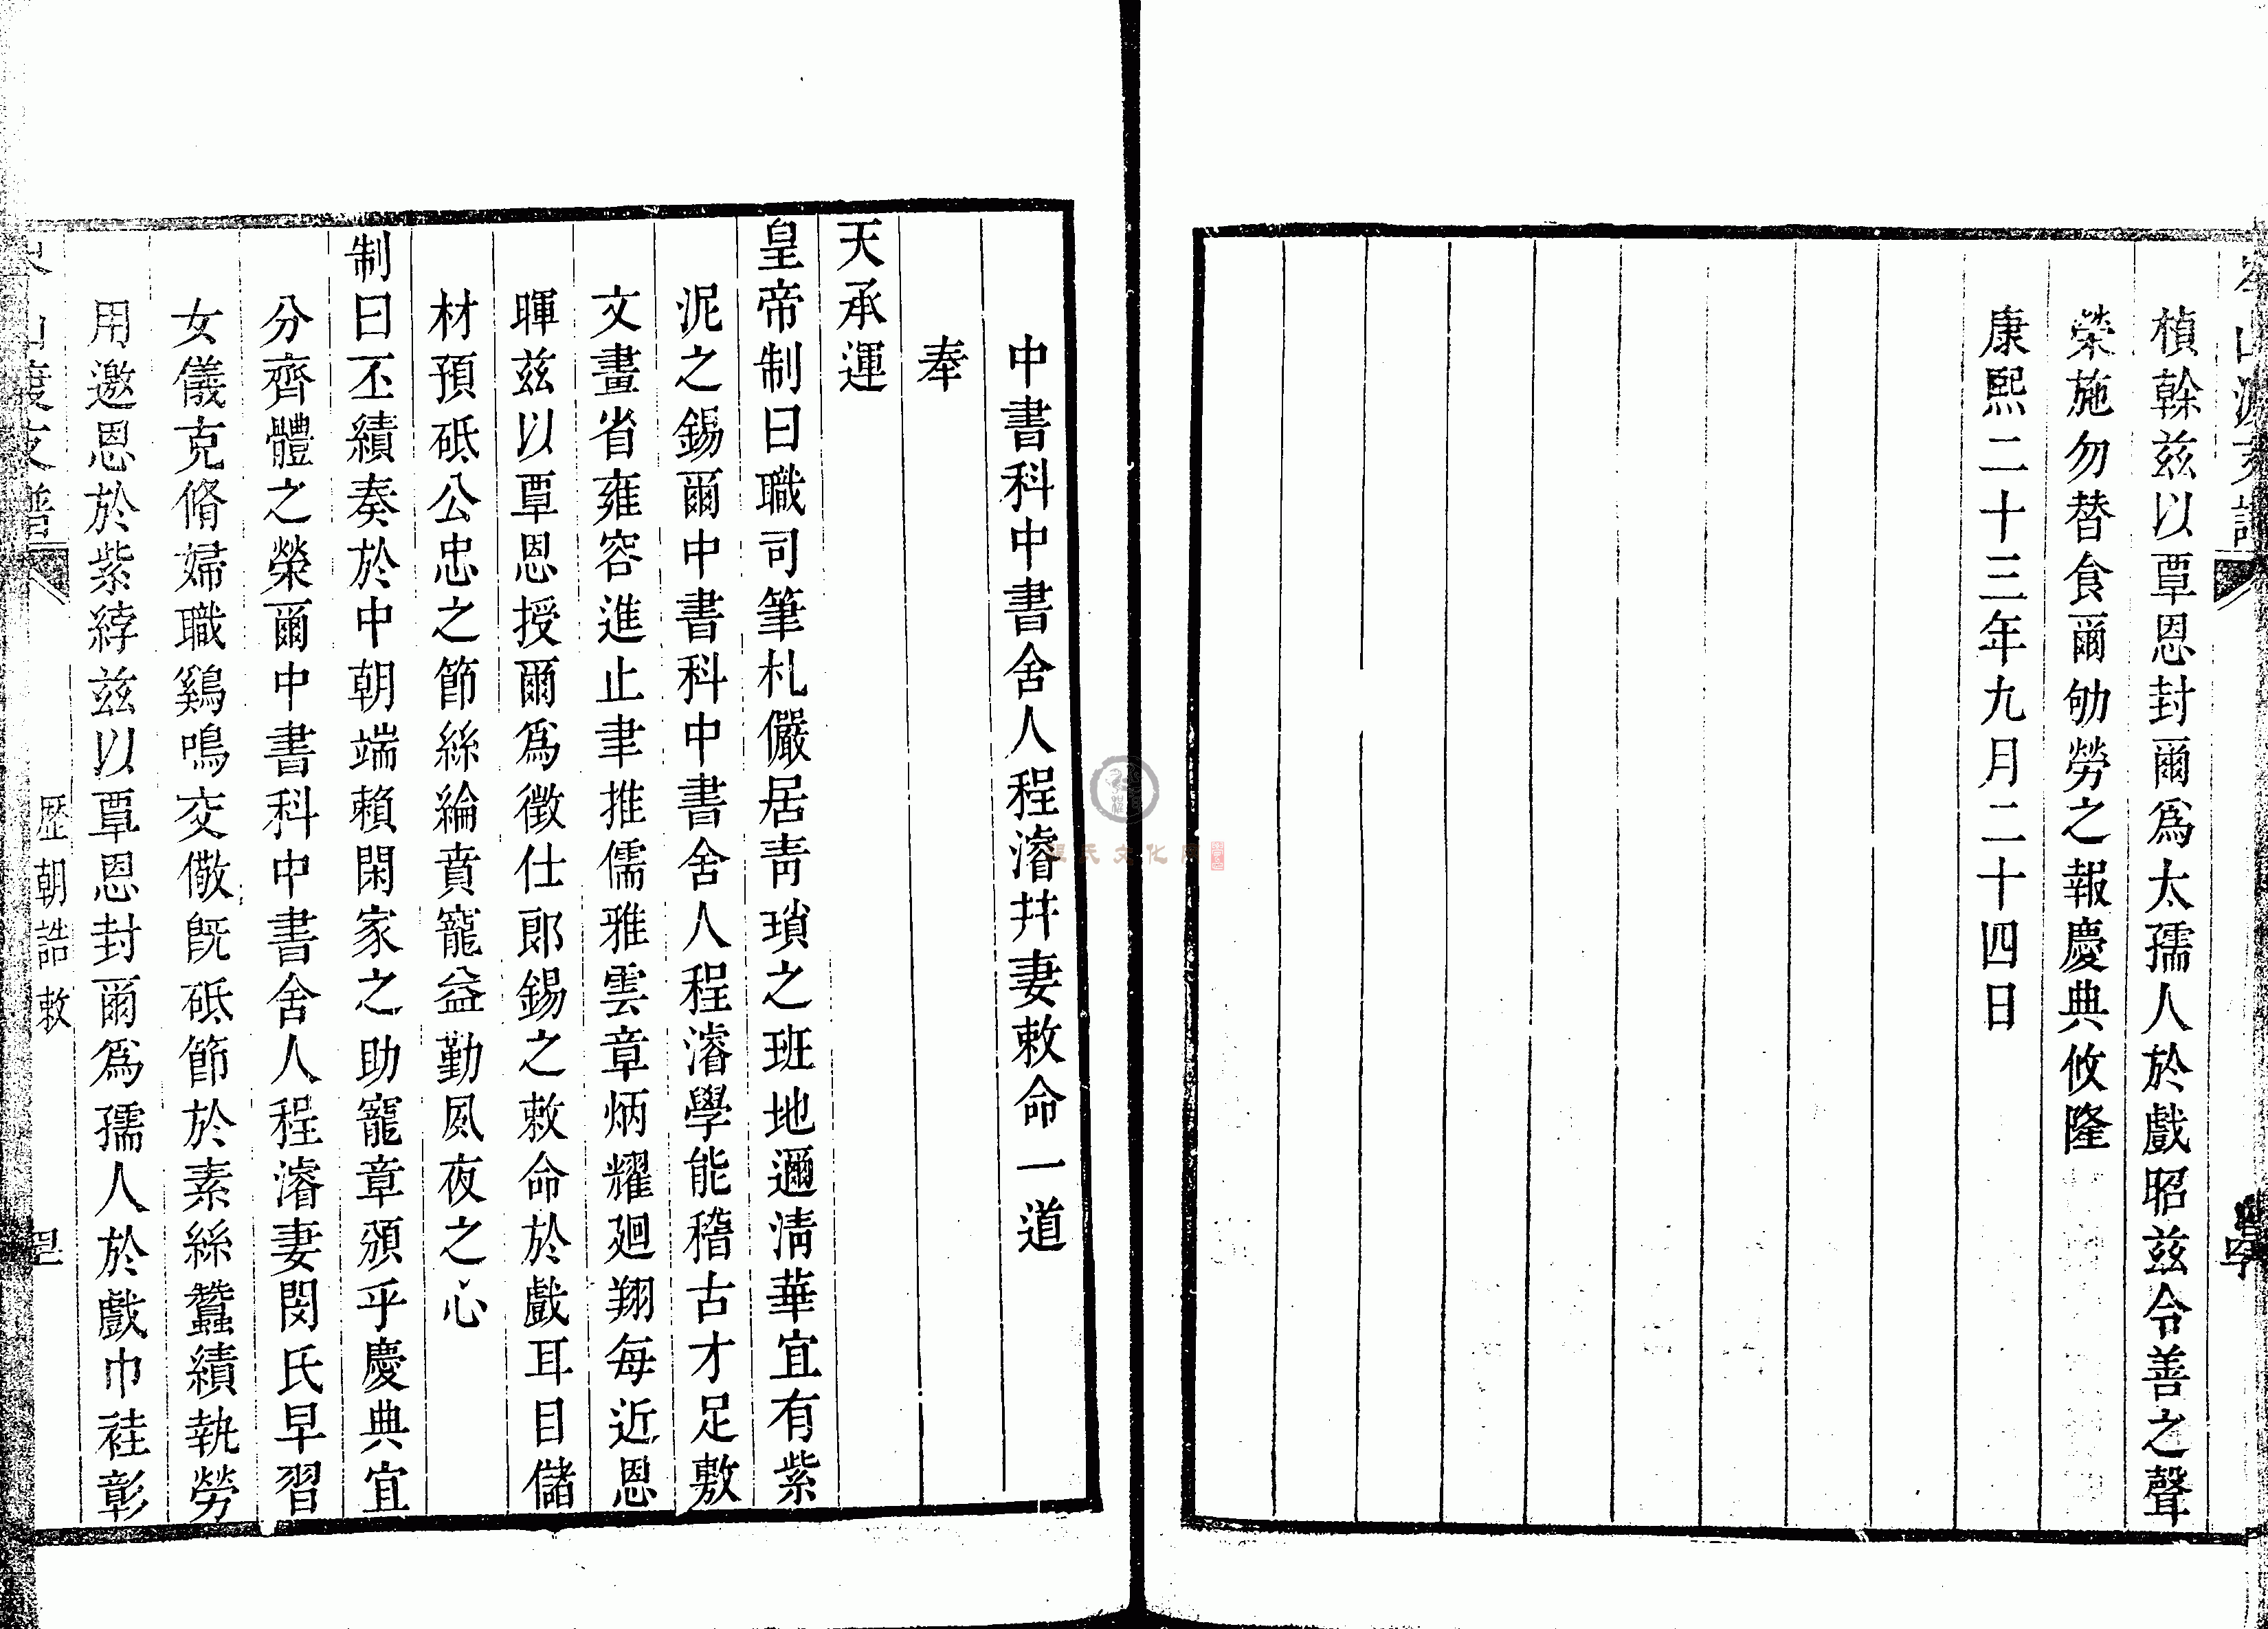 楨榦兹以覃恩封爾爲太孺人於戲昭兹令善之聲
榮施勿替食爾劬勞之報慶典攸隆
康熙二十三年九月二十四日
中書科中書舍人程濬幷妻敕命一道
奉
天承運
皇帝制曰職司筆札儼居靑瑣之班地邇淸華宜有紫
泥之錫爾中書科中書舍人程濬學能稽古才足敷
文畫省雍容進止聿推儒雅雲章炳耀廻翔每近恩
暉兹以覃恩授爾爲徵仕郎錫之敕命於戲耳目儲
材預砥公忠之節絲綸賁寵益勤夙夜之心
制曰丕績奏於中朝端賴閑家之助寵章頒乎慶典宜
分齊體之榮爾中書科中書舍人程濬妻閔氏早習
女儀克脩婦職鷄鳴交儆旣砥節於素絲蠶績執勞
用邀恩於紫綍兹以覃恩封爾爲孺人於戲巾袿彰
歷朝誥敕